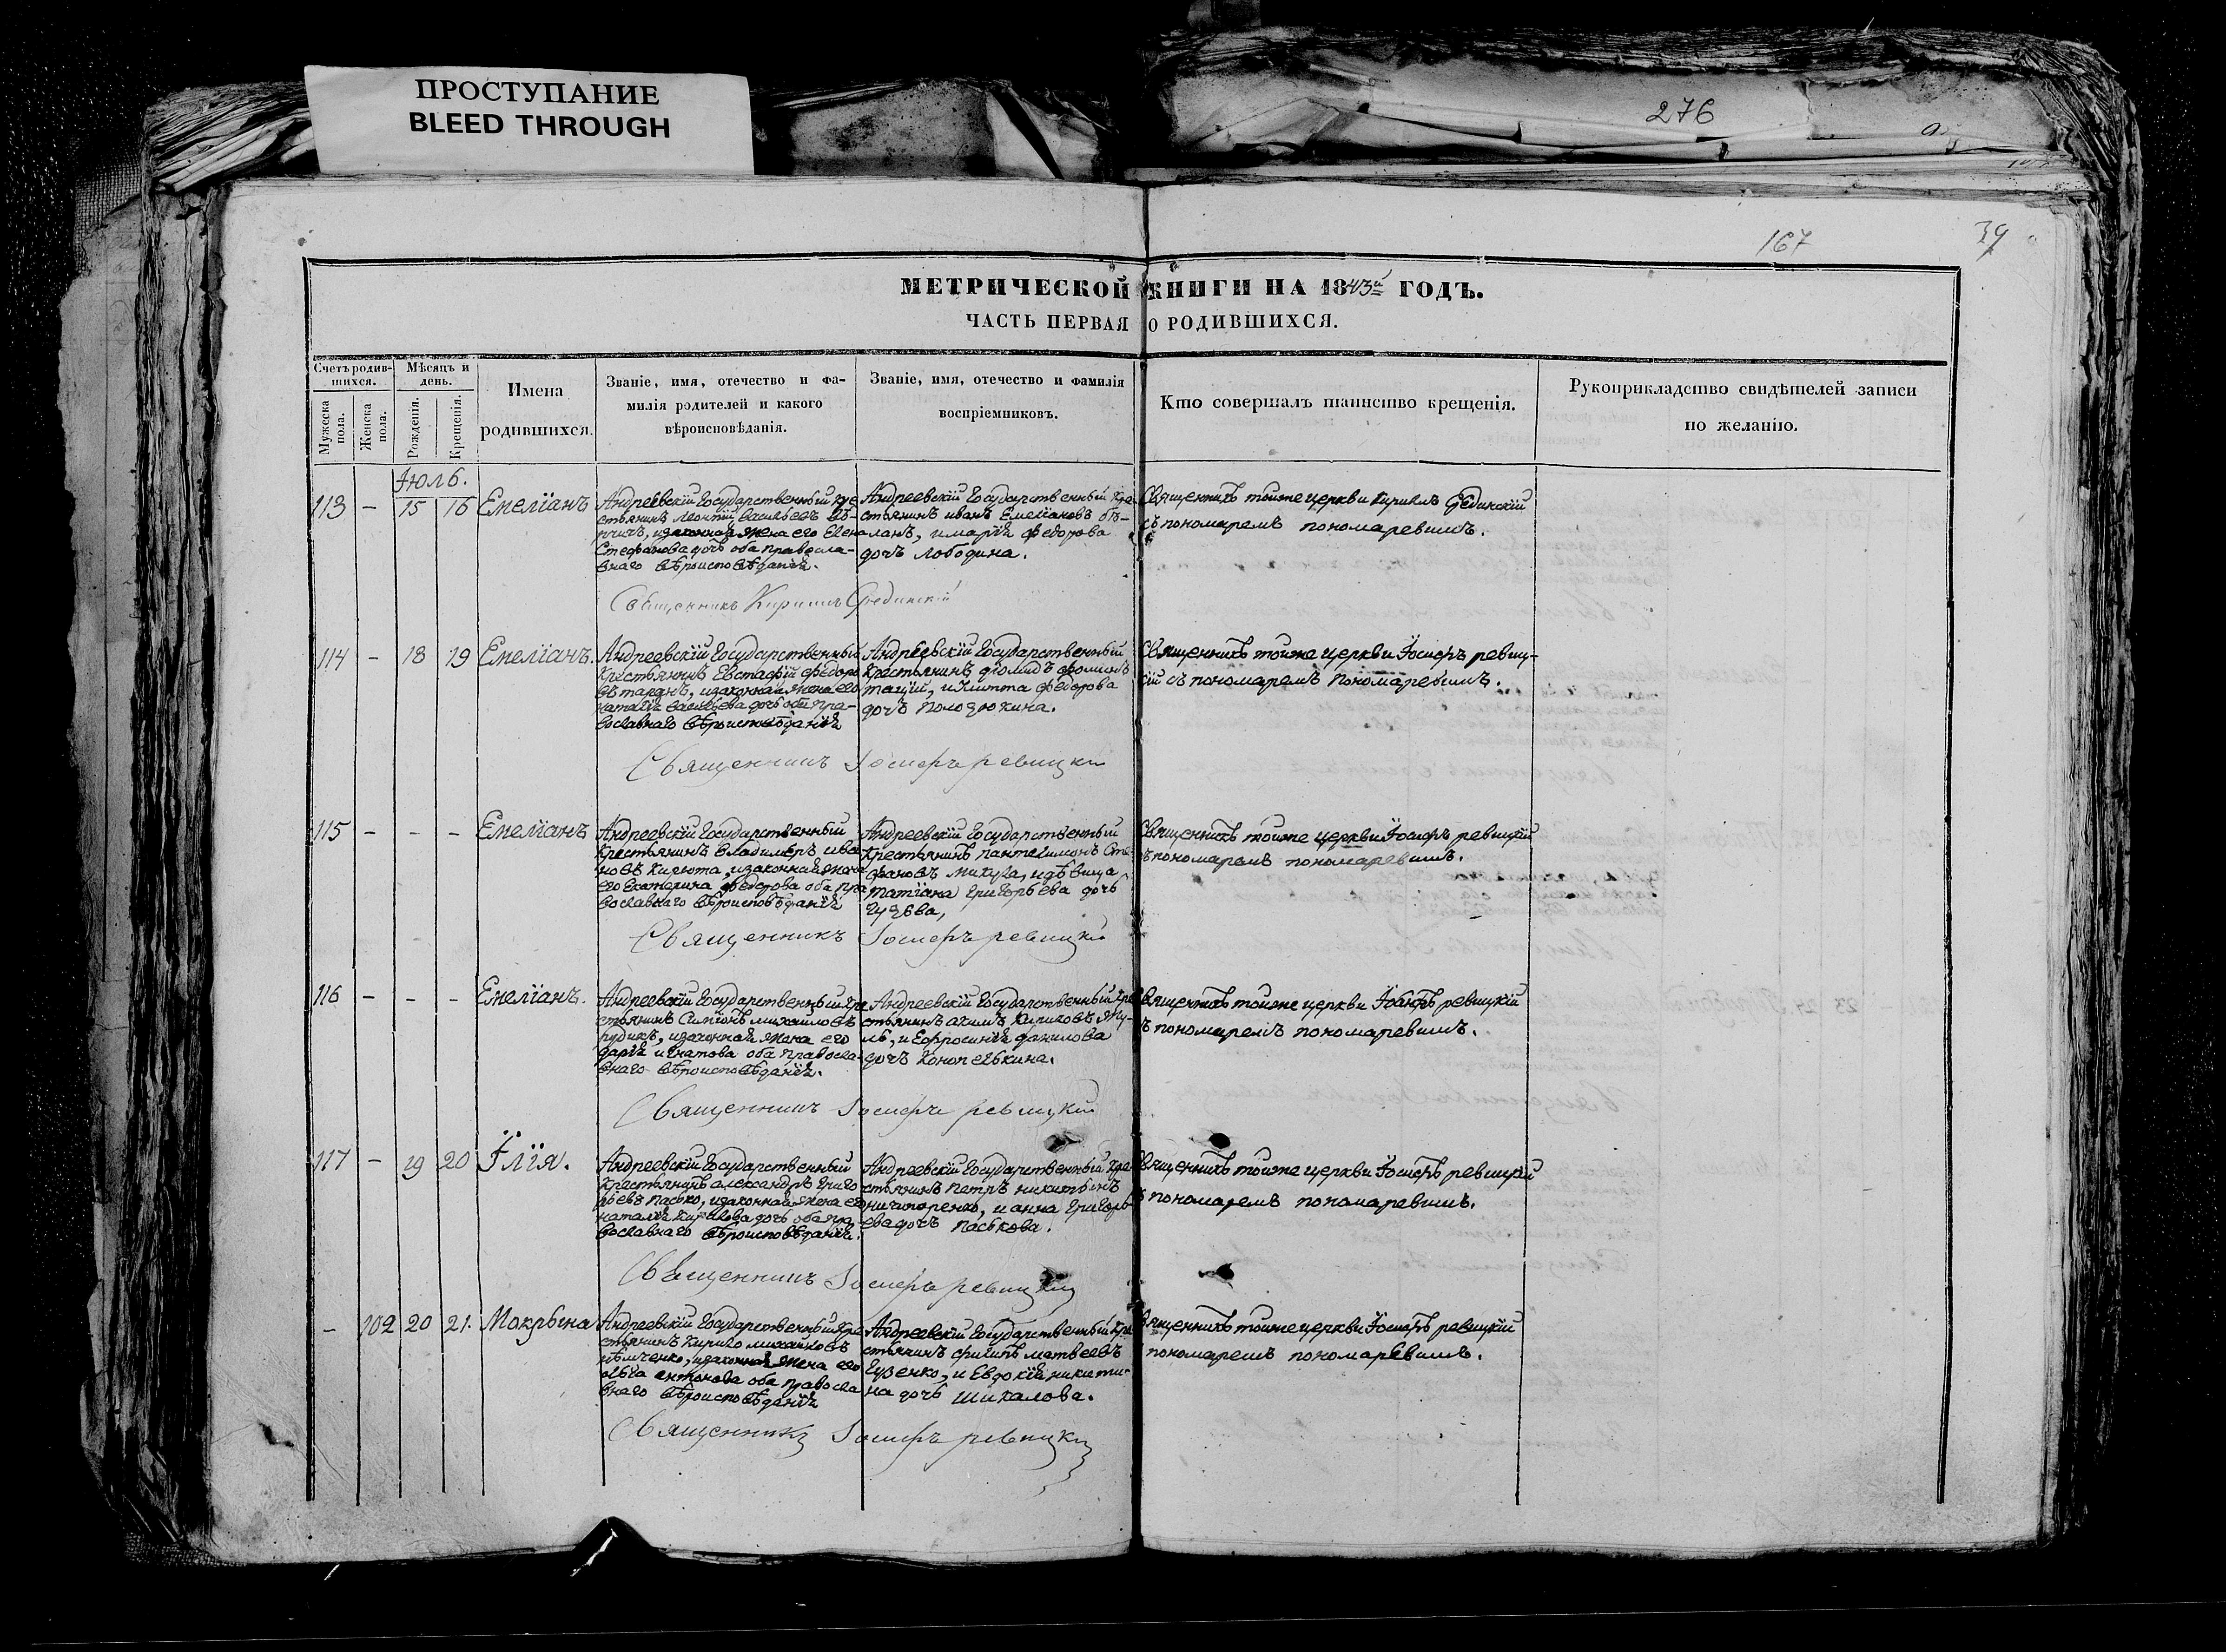 ПРОСТУПАНИЕ
BLEED THROUGH
276
167
39
МЕТРИЧЕСКОЙ КНИГИ НА 1843й ГОДЪ.
ЧАСТЬ ПЕРВАЯ О РОДИВШИХСЯ.
Счетъ родив-
шихся.
Мужеска
пола.
Женска
пола.
Мѣсяцъ и
день.
Рожденія.
Крещенія.
Имена
родившихся.
Званіе, имя, отечество и фа-
милія родителей и какого
вѣроисповѣданія.
Званіе, имя, отечество и фамилія
воспріемниковъ.
Кто совершалъ таинство крещенія.
Рукоприкладство свидѣтелей записи
по желанію.
Іюль.
113 - 15 16 Емеліанъ
Андреевскій Государственный кре
стьянинъ Леонтій Васильевъ
законная жена его Елена
Стефанова дочь оба правосла-
внаго вѣроисповѣданія.
Андреевскій Государственный кре
стьянинъ иванъ Емеліановъ
и марія Федорова
дочь Лободина.
Священникъ тойже церкви Кирилъ Срединскій
съ пономаремъ пономаревымъ.
Священникъ Кирилъ Срединскій
114 - 18 19 Емеліанъ.
Андреевскій Государственный
крестьянинъ Евстафій Федоро
въ таранъ, изаконная жена его
наталія Васильева дочь оба пра-
вославнаго вѣроисповѣданія
Андреевскій Государственный
крестьянинъ діомидъ фоминъ
дочь Полозюкина.
Священникъ тойже церкви Іосифъ ревиц-
кій съ пономаремъ пономаревымъ.
Священникъ Іосифъ ревицкій
115 - - - Емеліанъ
Андреевскій Государственный
крестьянинъ Владимеръ ива
новъ Кирюта, изаконная жена
его Екатерина федорова оба пра
вославнаго вѣроисповѣданія
Андреевскій Государственный
крестьянинъ пантелимонъ Сте
фановъ микула, идѣвица
татіана григорьева дочь
гузѣва,
Священникъ тойже церкви Іосифъ ревицкій
съ пономаремъ пономаревымъ.
Священникъ Іосифъ ревицкій
116 - - - Емеліанъ.
Андреевскій Государственный кре
стьянинъ Симіонъ михайловъ
рудикъ, изаконная жена его
дарія игнатова оба правосла-
внаго вѣроисповѣданія.
Андреевскій Государственный кре
стьянинъ акимъ Кириловъ
и Ефросинія данилова
дочь Конопелькина.
Священникъ тойже церкви ревицкій
съ пономаремъ пономаревымъ.
Священникъ Іосифъ ревицкій
117 - 19 20 Ілія.
Андреевскій Государственный
крестьянинъ александръ григо
рьевъ пасько, изаконная жена его
наталія Кирилова дочь оба пра
вославнаго вѣроисповѣданія.
Андреевскій Государственный кре
стьянинъ петръ никитинъ
ничипоренко, и анна григорь
ева дочь паськова.
Священникъ тойже церкви Іосифъ ревицкій
съ пономаремъ пономаревымъ.
Священникъ Іосифъ ревицкій
- 102 20 21. Мокрына
Андреевскій Государственный кре
стьянинъ Кирило михайловъ
нѣмченко, изаконная жена его
ольга антонова оба правосла
внаго вѣроисповѣданія
Андреевскій Государственный кре
стьянинъ филипъ матвеевъ
гузенко, и Евдокія никити-
на дочь шикалова.
Священникъ тойже церкви Іосифъ ревицкій
пономаремъ пономаревымъ.
Священникъ Іосифъ ревицкій